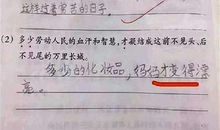 这样过着贫苦的日子。
(2) 多少劳动人民的血汗和智慧,才凝结成这前不见头、后
不见尾的万里长城。
多少的化妆品,妈妈才变得漂
亮。